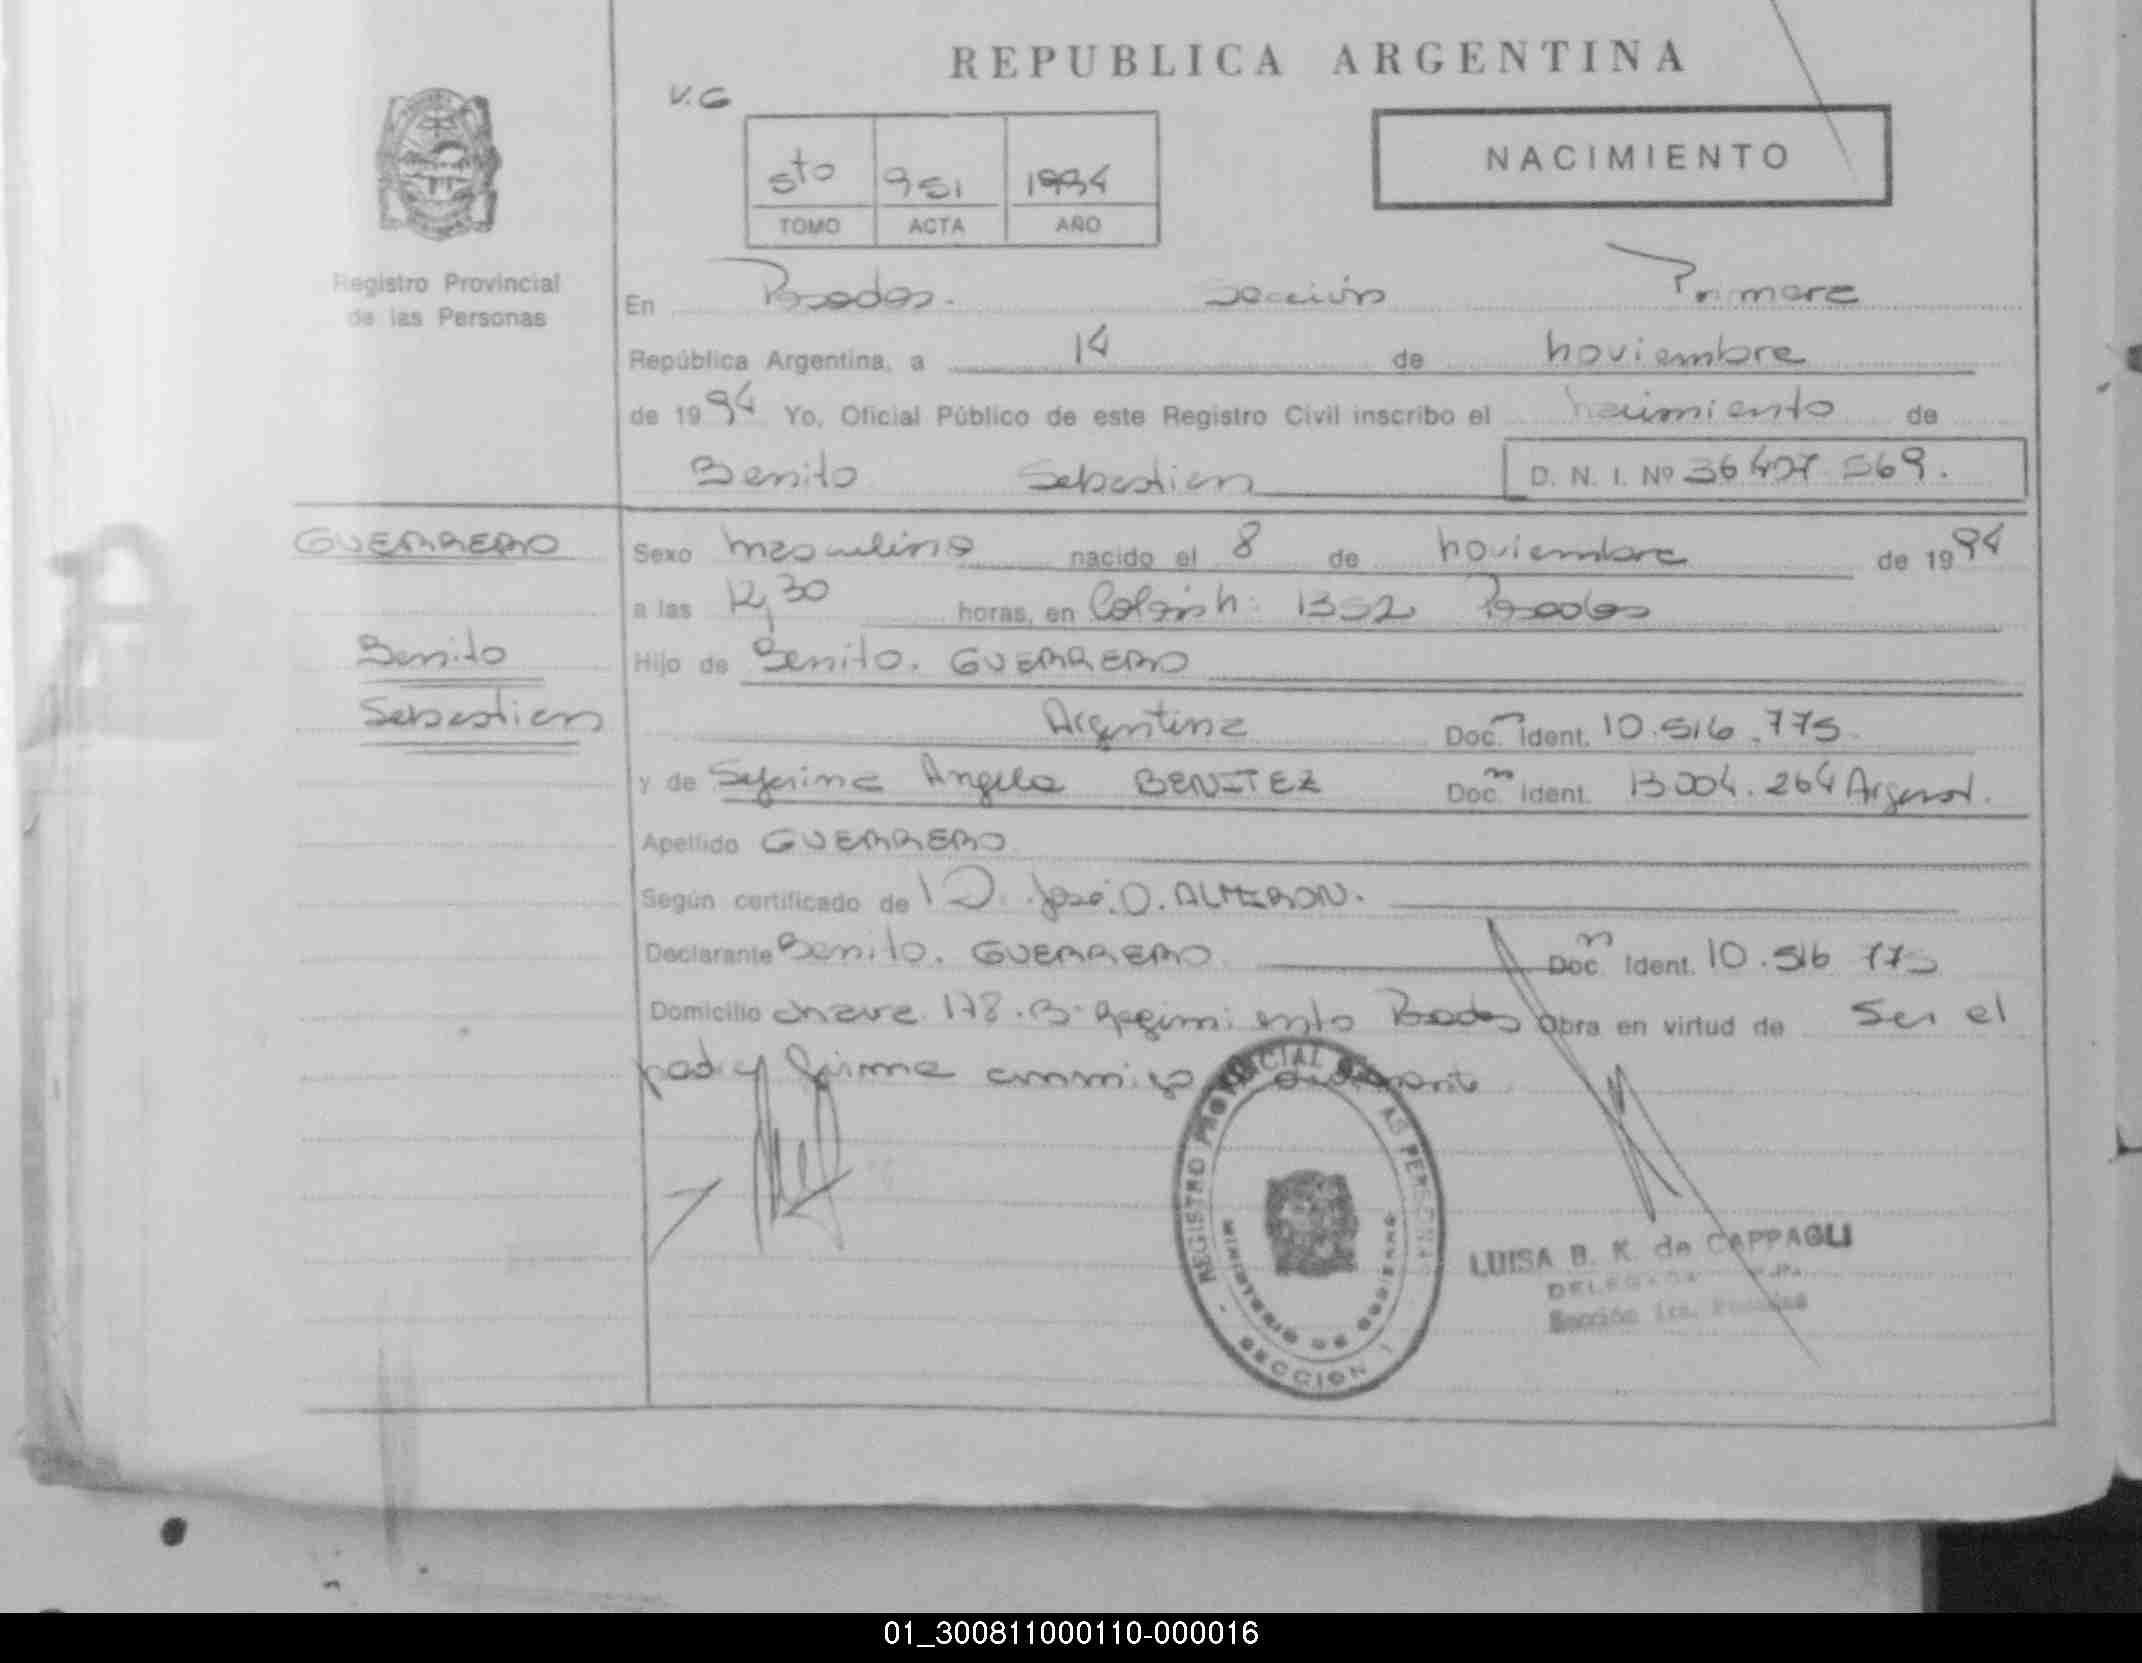 REPUBLICA ARGENTINA
V.G
5to 951 1994
TOMO ACTA AÑO
NACIMIENTO
Registro Provincial
de las Personas
En Posadas. Sección Primera
República Argentina, a 14 de noviembre
de 1994 Yo, Oficial Público de este Registro Civil inscribo el nacimiento de
Benito Sebastian D. N. I. Nº 36.407.569.
GUERRERO
Benito
Sebastian
Sexo masculino nacido el 8 de noviembre de 1994
a las 12,30 horas, en 1352 Posadas
Hijo de Benito. GUERRERO
Argentina Doc. Ident. 10.516.775
y de Seferina Angela BENITEZ Doc. Ident. 13004.264
Apellido GUERRERO
Según certificado de D. José. O. ALMIRON.
Declarante Benito. GUERRERO Doc. Ident. 10.516 775
Domicilio 178. Bº Regimiento Posadas Obra en virtud de Ser el
padre y firma conmigo
REGISTRO PROVINCIAL DE LAS PERSONAS
MINISTERIO DE GOBIERNO
SECCION 1
LUISA B. K. de CAPPAGLI
DELEGADA
Sección 1ra. Posadas
01_300811000110-000016